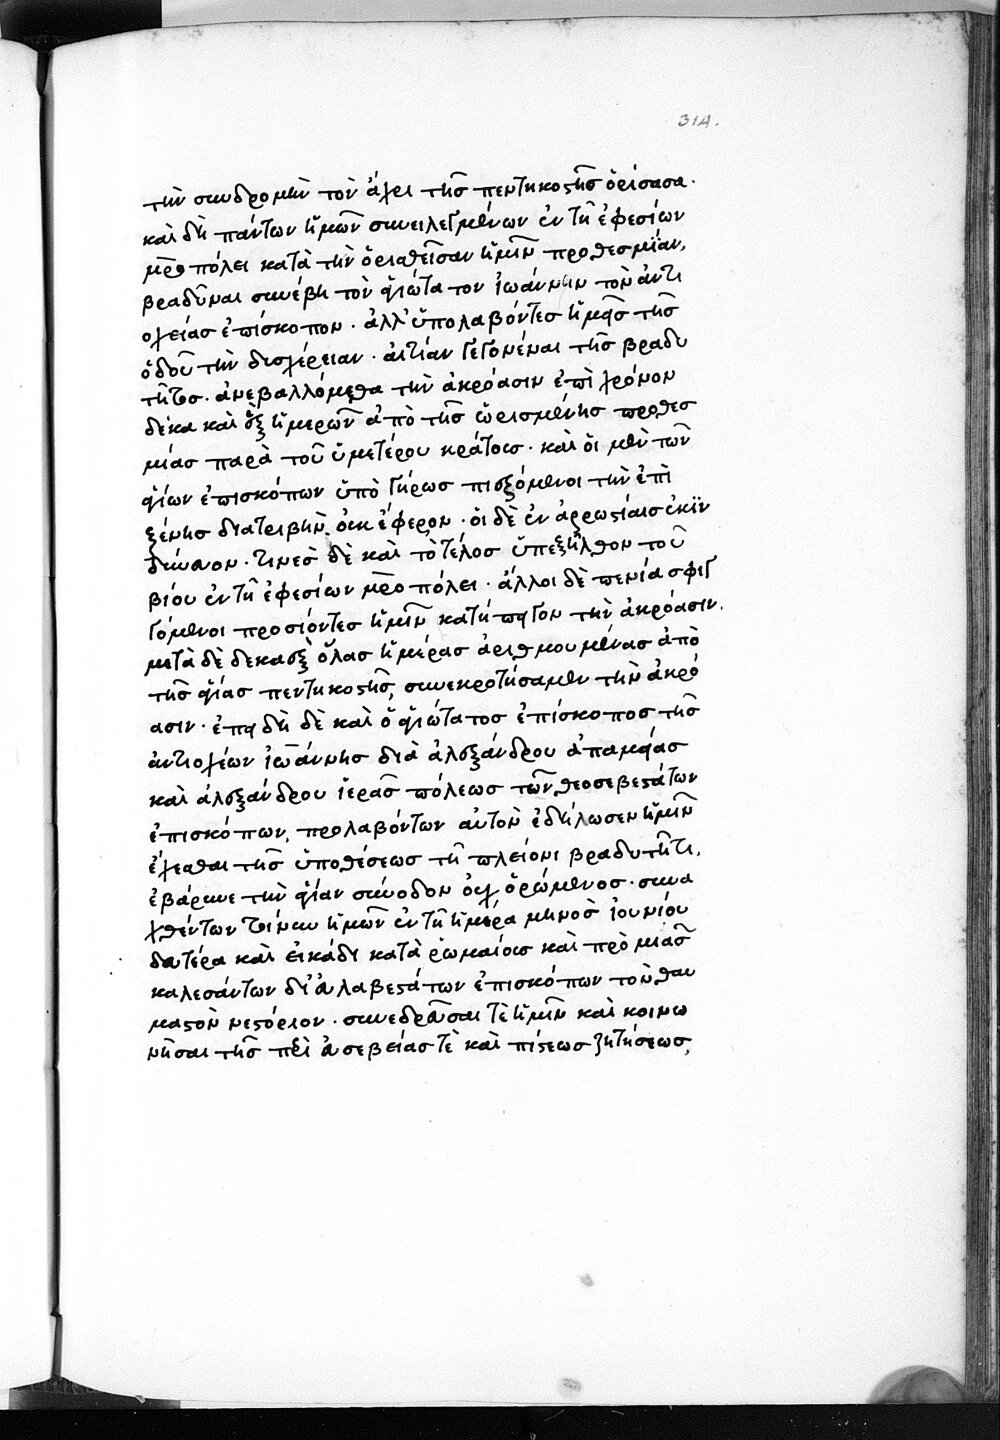 314.
τὴν συνδρομὴν τὸν ἄχρι τῆς πεντηκοστῆς ὁρίσασα·
καὶ δὴ πάντων ἡμῶν συνειλεγμένων ἐν τῆ ἐφεσίων
μρ̅ο πόλει κατὰ τὴν ὁρισθεῖσαν ἡμῖν προθεσμίαν,
βραδῦναι συνέβη τὸν ἁγιώτατον ἰωάννην τὸν ἀντι
οχείας ἐπίσκοπον· ἀλλ' ὑπολαβόντες ἡμεῖς τῆς
ὁδοῦ τὴν δυσχέρειαν· αἰτίαν γεγονέναι τῆς βραδυ
τῆτος· ἀνεβαλλόμεθα τὴν ἀκρόασιν ἐπὶ χρόνον
δέκα καὶ ἓξ ἡμερῶν ἀπὸ τῆς ὡρισμένης προθεσ
μίας παρὰ τοῦ ὑμετέρου κράτους· καὶ οἱ μὲν τῶν
ἁγίων ἐπισκόπων ὑπὸ γήρως πιεζόμενοι τὴν ἐπὶ
ξένης διατριβὴν οὐκ ἔφερον· οἱ δὲ ἐν ἀρρωστίαις ἐκιν
δύνευον· τινὲς δὲ καὶ τὸ τέλος ὑπεξῆλθον τοῦ
βίου ἐν τῆ ἐφεσίων μρ̅ο πόλει· ἄλλοι δὲ πενία σφιγ
γόμενοι προσιόντες ἡμῖν κατήπειγον τὴν ἀκρόασιν.
μετὰ δὲ δεκαὲξ ὅλας ἡμέρας ἀριθμουμένας ἀπὸ
τῆς ἁγίας πεντηκοστῆς, συνεκροτήσαμεν τὴν ἀκρό
ασιν· ἐπειδὴ δὲ καὶ ὁ ἁγιώτατος ἐπίσκοπος τῆς
ἀντιοχέων ἰωάννης διὰ ἀλεξάνδρου ἀπαμείας
καὶ ἀλεξάνδρου ἱερᾶς πόλεως τῶν θεοσεβεστάτων
ἐπισκόπων, προλαβόντων αὐτὸν ἐδήλωσεν ἡμῖν
ἔχεσθαι τῆς ὑποθέσεως τῆ πλείονι βραδυτῆτι,
ἐβάρυνε τὴν ἁγίαν σύνοδον οὐχ ὁρώμενος· συνα
χθέντων τοίνυν ἡμῶν ἐν τῆ ἡμέρα μηνὸς ἰουνίου
δευτέρα καὶ εἰκάδι κατὰ ῥωμαίους καὶ πρὸ μιᾶς
καλεσάντων δι' εὐλαβεστάτων ἐπισκόπων τὸν θαυ
μαστὸν νεστόριον· συνεδρεῦσαί τε ἡμῖν καὶ κοινω
νῆσαι τῆς περὶ εὐσεβείας τὲ καὶ πίστεως ζητήσεως,